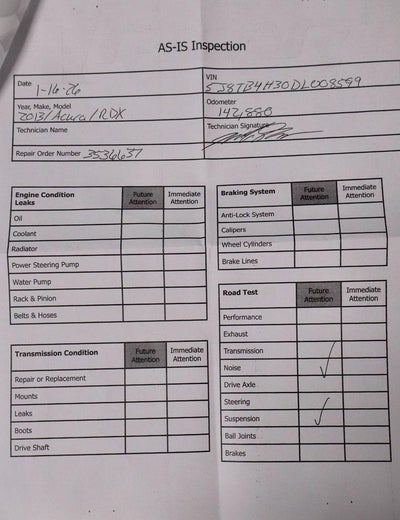 AS-IS Inspection
Date 1-16-26
VIN 5J8TB4H30DL008599
Year, Make, Model 2013/Acura/RDX
Odometer 142,880
Technician Name
Technician Signature
Repair Order Number 3536637
Engine Condition Future Immediate
Leaks Attention Attention
Oil
Coolant
Radiator
Power Steering Pump
Water Pump
Rack & Pinion
Belts & Hoses
Braking System Future Immediate
Attention Attention
Anti-Lock System
Calipers
Wheel Cylinders
Brake Lines
Transmission Condition Future Immediate
Attention Attention
Repair or Replacement
Mounts
Leaks
Boots
Drive Shaft
Road Test Future Immediate
Attention Attention
Performance
Exhaust
Transmission
Noise
Drive Axle
Steering
Suspension
Ball Joints
Brakes